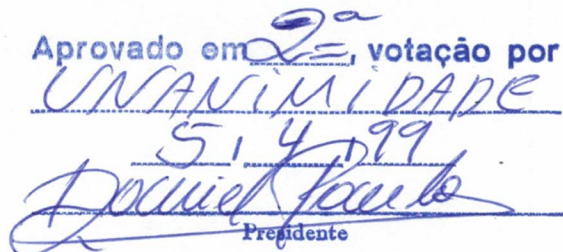 Aprovado em 2ª, votação por
UNANIMIDADE
5 / 4 / 99
Daniel Paulo
Presidente